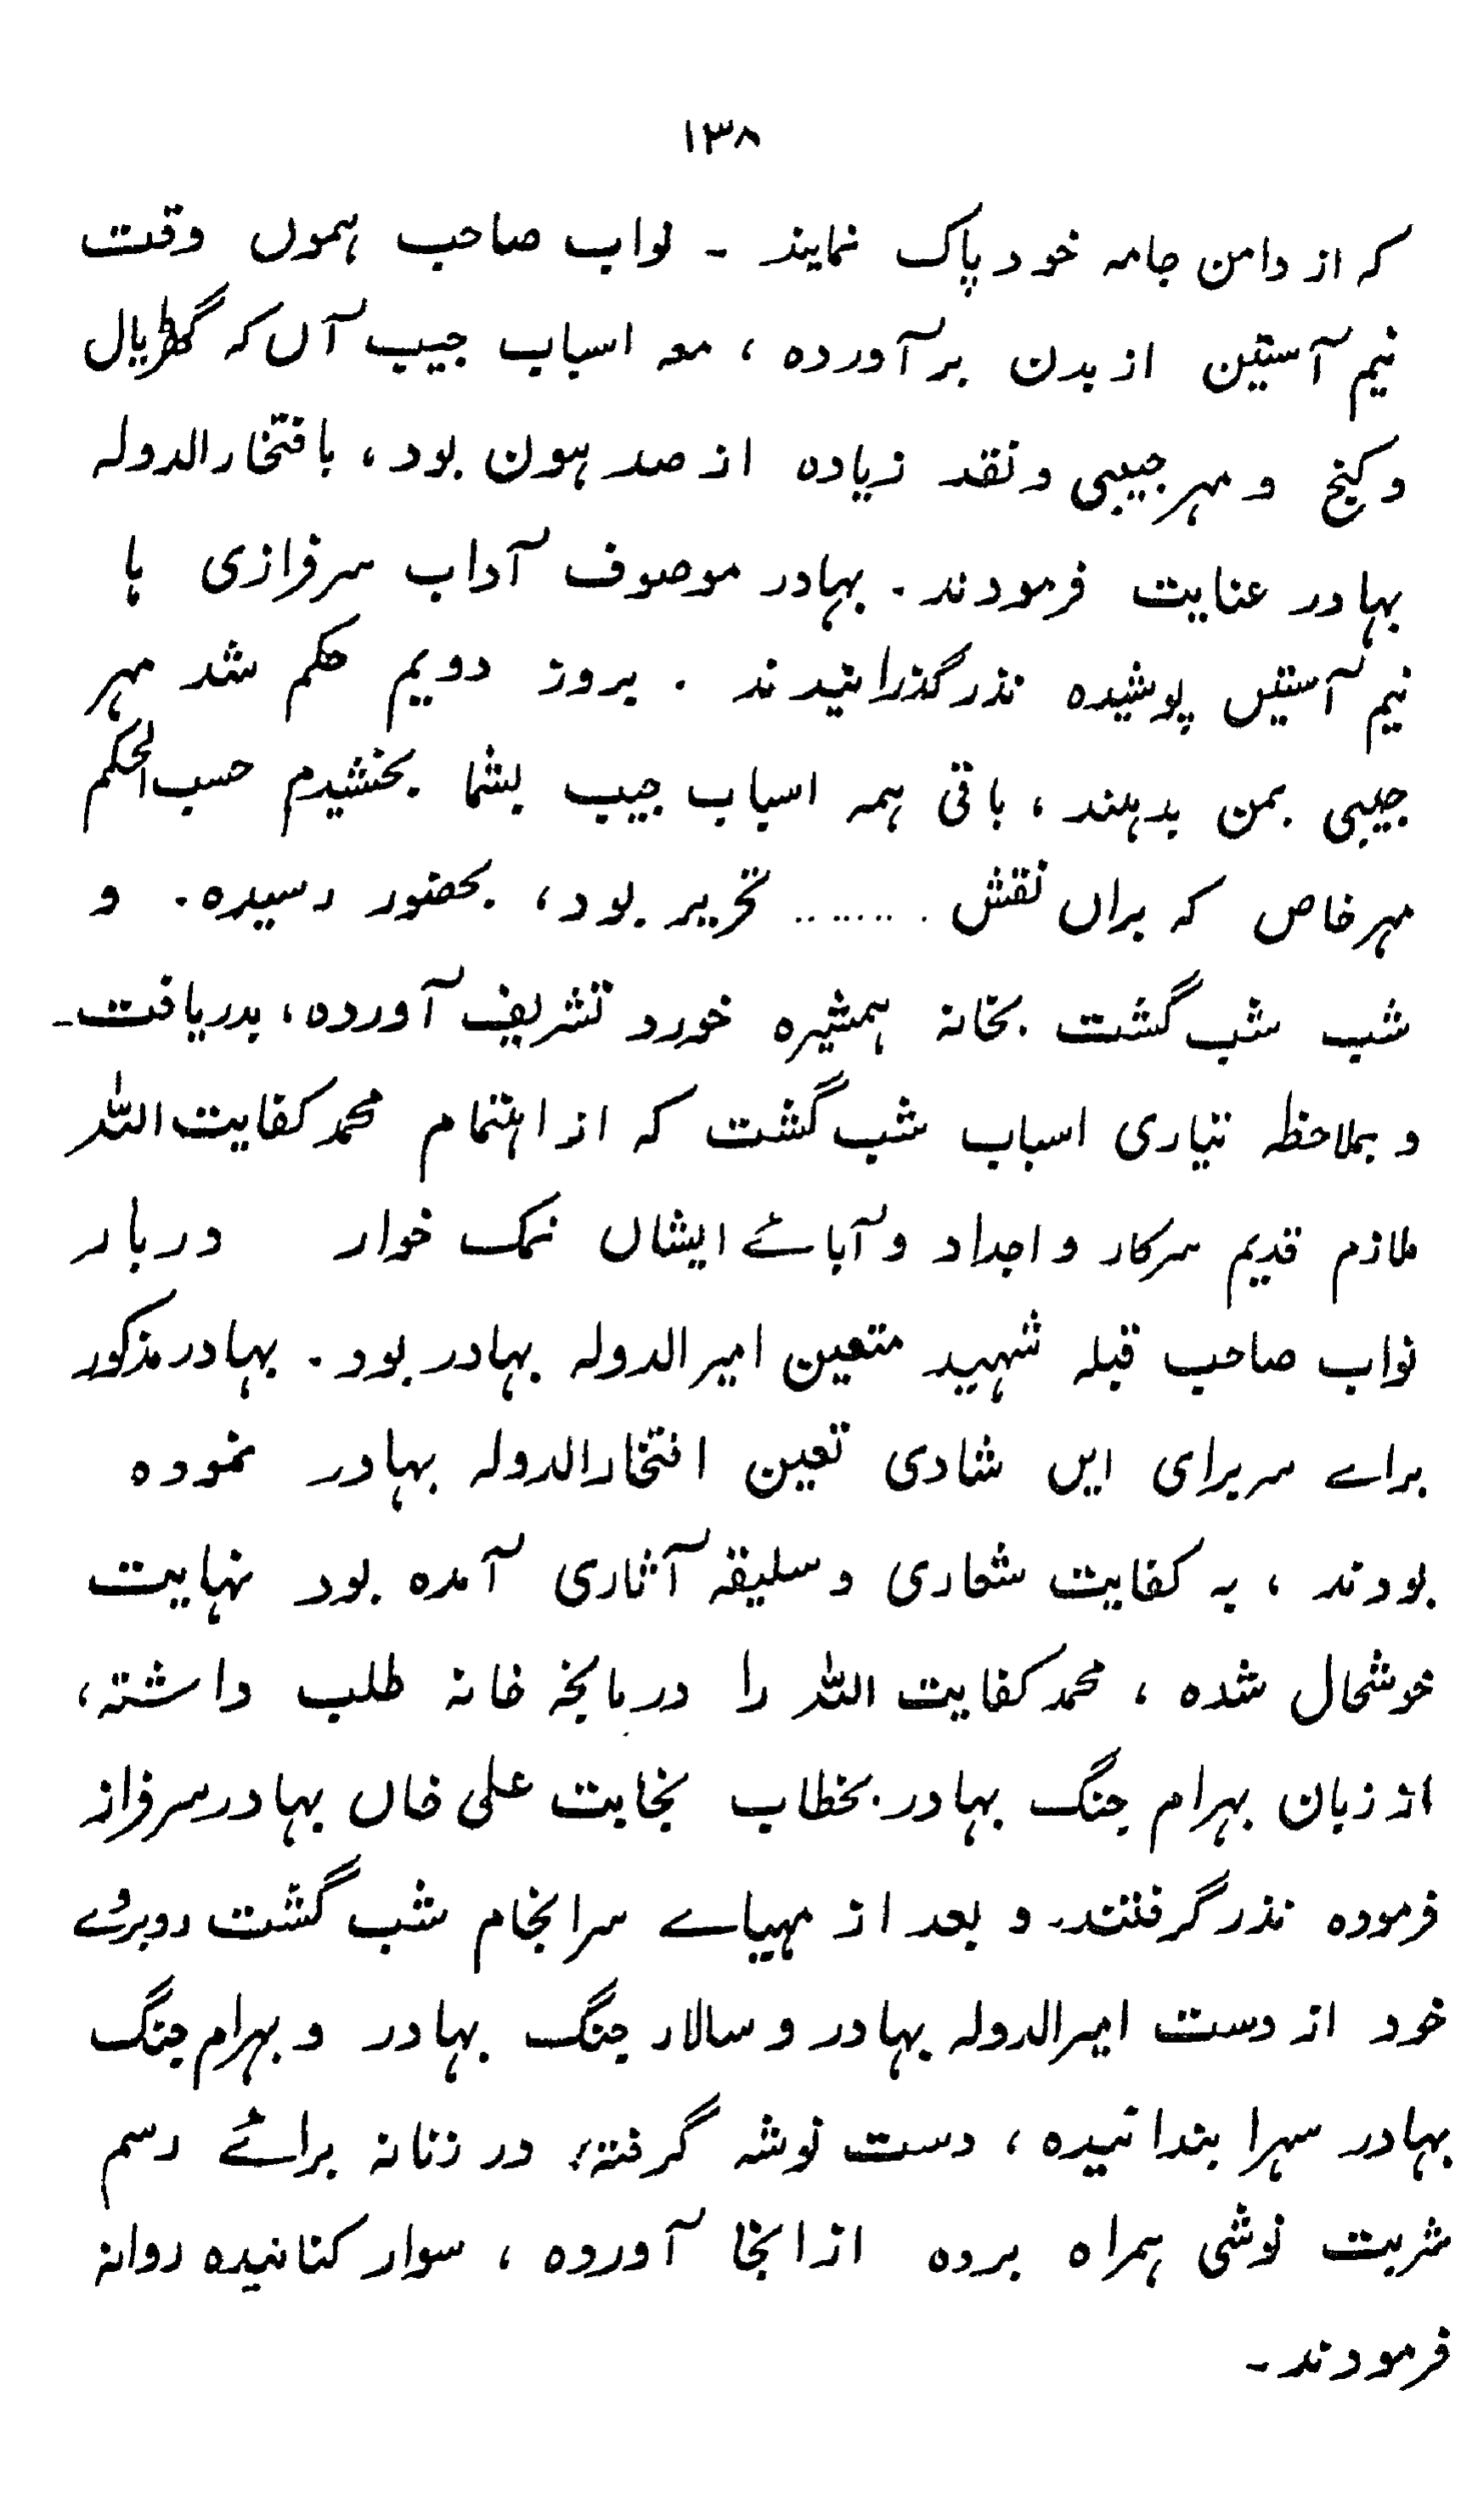 ۱۳۸
که از دامن جامه خود پاک نمایند ۔ نواب صاحب ہموں وقت
نیم آستین از بدن بر آورده ، معہ اسباب جیب آں کہ گھڑیال
و کیخ و مہر جیبی و نقد زیاده از صد ہون بود ، بافتخار الدولہ
بہادر عنایت فرمودند ۔ بہادر موصوف آداب سرفرازی ہا
نیم آستیں پوشیده نذر گذرانیدند ۔ بروز دویم حکم شد مہر
جیبی بمن بدہند ، باقی ہمہ اسباب جیب بشما بخشیدم حسب الحکم
مہر خاص کہ براں نقش ........ تحریر بود ، بحضور رسیده ۔ و
شب شب گشت بخانہ ہمشیرہ خورد تشریف آورده ، بدریافت ۔
و بملاحظہ تیاری اسباب شب گشت کہ از اہتمام محمد کفایت اللہ
ملازم قدیم سرکار و اجداد و آبائے ایشاں نمک خوار دربار
نواب صاحب قبلہ شہید متعین امیر الدولہ بہادر بود ۔ بہادر مذکور
براے سربرای ایں شادی تعین افتخار الدولہ بہادر نموده
بودند ، بہ کفایت شعاری و سلیقہ آثاری آمده بود نہایت
خوشحال شده ، محمد کفایت اللہ را در باغچہ خانہ طلب داشتہ ،
از زبان بہرام جنگ بہادر بخطاب نجابت علی خاں بہادر سرفراز
فرموده نذر گرفتند و بعد از مہیاے سرانجام شب گشت روبروے
خود از دست امیر الدولہ بہادر و سالار جنگ بہادر و بہرام جنگ
بہادر سہرا بندانیده ، دست نوشہ گرفتہ ، در زنانہ برائے رسم
شربت نوشی ہمراه برده از انجا آورده ، سوار کنانیده روانہ
فرمودند ۔